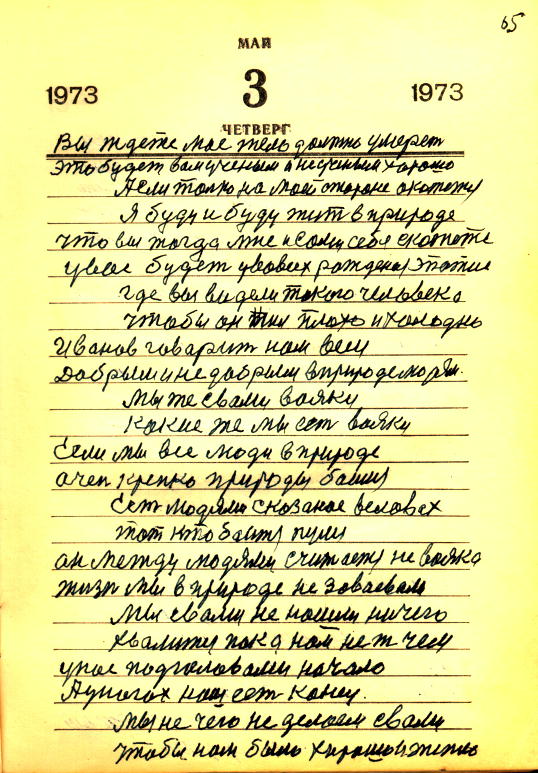 65
МАЙ
1973 3 1973
ЧЕТВЕРГ
Вы ждете мое тело должно умереть
Это будет вам ученым и неученым хорошо
А если толко на моей стороне окажеться
Я буду и буду жит в природе
Что вы тогда мне и сами себе скажете
у вас будет
где вы видели такого человека
Чтобы он жил плохо и холодно
Иванов говарит нам всем
Добрым и недобрым в природе людям
Мы же с вами вояки
Какие же мы ест вояки
Если мы все люди в природе
очен крепко природы
Ест людями сказаное в словах
тот кто пули
он между людями не вояка
жизн мы в природе не завоевали
Мы с вами не нашли ничего
Хвалитя пока нам нет чем
у нас под головами начало
А у ногах нам ест конец.
Мы не чего не делаем с вами
Чтобы нам было хорошо и тепло